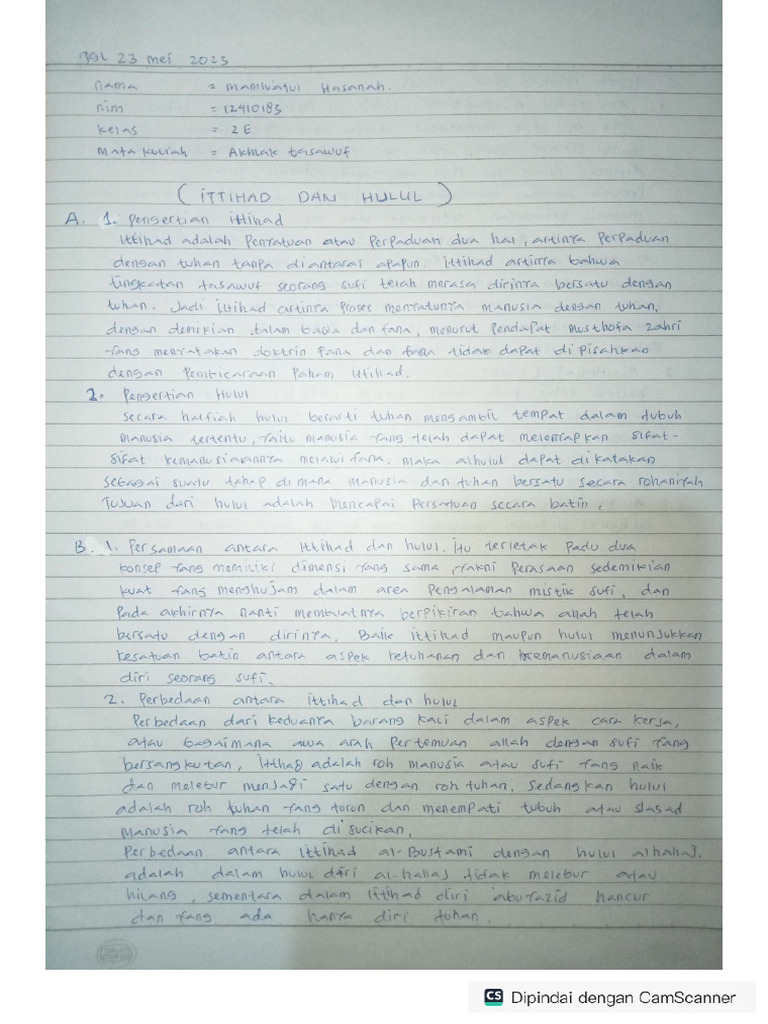 Tgl 23 mei 2025
nama = mamlu'atul Hasanah.
nim = 12410185
kelas = 2 E
Mata kuliah = Akhlak tasawuf
( ITTIHAD DAN HULUL )
A. 1. Pengertian ittihad
ittihad adalah Penyatuan atau Perpaduan dua hal, artinya Perpaduan
dengan tuhan tanpa diantarai apapun. ittihad artinya bahwa
tingkatan tasawuf seorang sufi telah merasa dirinya bersatu dengan
tuhan. Jadi ittihad artinya Proses menyatunya manusia dengan tuhan,
dengan demikian dalam baqa dan fana, menurut Pendapat musthofa zahri
yang menyatakan doktrin fana dan baqa tidak dapat di Pisahkan
dengan Pembicaraan Paham ittihad.
2. Pengertian Hulul
secara harfiah hulul berarti tuhan mengambil tempat dalam tubuh
manusia tertentu, yaitu manusia yang telah dapat melenyapkan sifat-
sifat kemanusiaannya melalui fana. Maka alhulul dapat di katakan
sebagai suatu tahap di mana manusia dan tuhan bersatu secara rohaniyah
Tujuan dari hulul adalah Mencapai Persatuan secara batin.
B. 1. Persamaan antara ittihad dan hulul. itu terletak Padu dua
konsep yang memiliki dimensi yang sama, yakni Perasaan sedemikian
kuat yang menghujam dalam area Pengalaman mistik sufi, dan
Pada akhirnya nanti membuatnya berpikiran bahwa allah telah
bersatu dengan dirinya, Baik ittihad maupun hulul menunjukkan
kesatuan batin antara aspek ketuhanan dan kemanusiaan dalam
diri seorang sufi.
2. Perbedaan antara ittihad dan hulul
Perbedaan dari keduanya barang kali dalam aspek cara kerja,
atau bagaimana awa arah Pertemuan allah dengan sufi yang
bersangkutan, ittihad adalah roh manusia atau sufi yang naik
dan melebur menjadi satu dengan roh tuhan. Sedangkan hulul
adalah roh tuhan yang turun dan menempati tubuh atau Jasad
manusia yang telah di sucikan,
Perbedaan antara ittihad al-Bustami dengan hulul alhallaj.
adalah dalam hulul diri al-hallaj tidak melebur atau
hilang, sementara dalam ittihad diri abu yazid hancur
dan yang ada hanya diri tuhan.
CS Dipindai dengan CamScanner